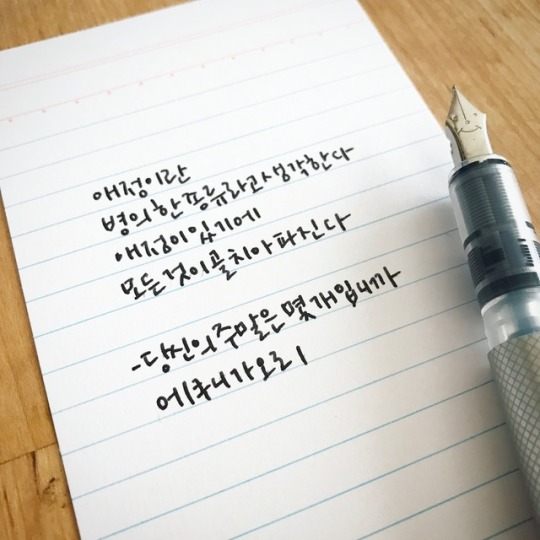 애정이란
병의 한 종류라고 생각한다
애정이 있기에
모든것이 골치아파진다
-당신의 주말은 몇개입니까
에쿠니가오리